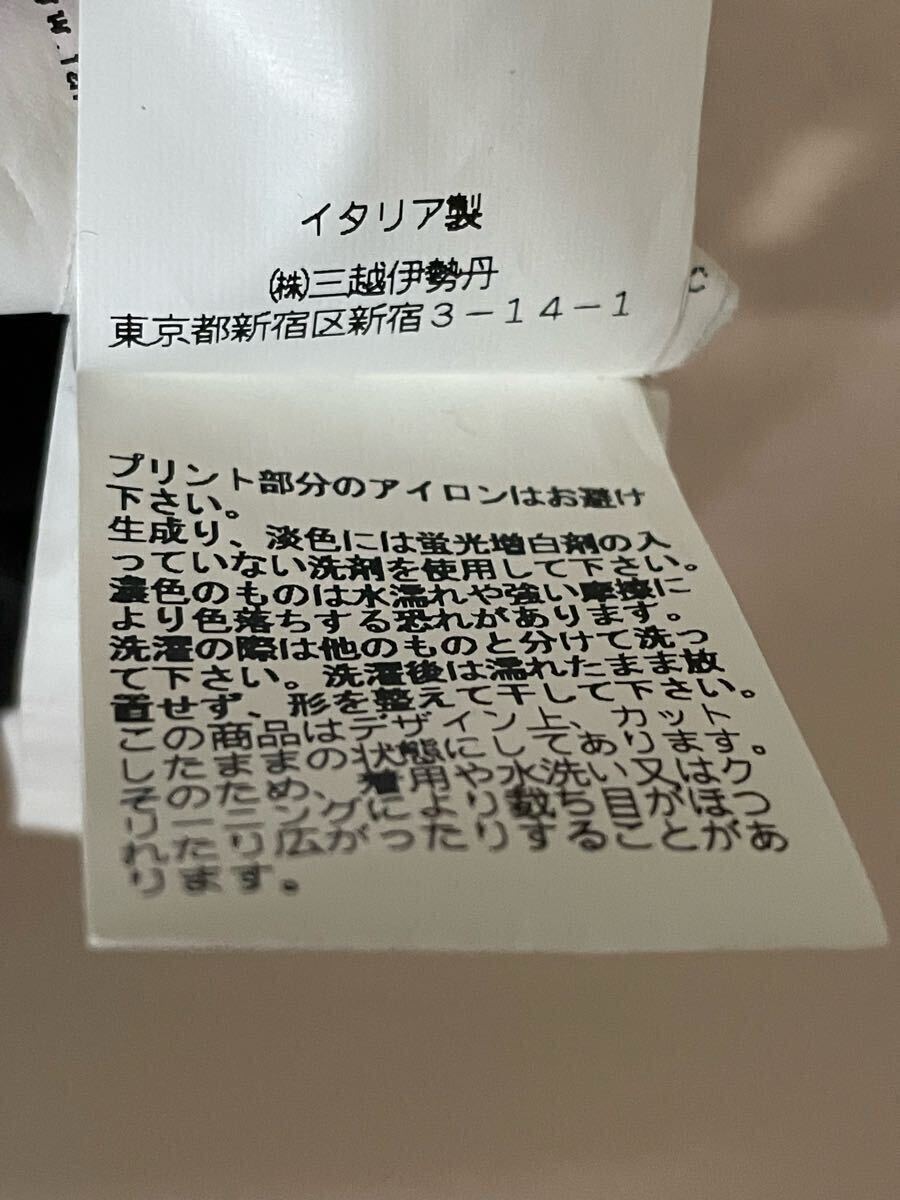 イタリア製
㈱三越伊勢丹
東京都新宿区新宿3-14-1
C
プリント部分のアイロンはお避け
下さい。
生成り、淡色には蛍光増白剤の入
っていない洗剤を使用して下さい。
濃色のものは水濡れや強い摩擦に
より色落ちする恐れがあります。
洗濯の際は他のものと分けて洗っ
て下さい。洗濯後は濡れたまま放
置せず、形を整えて干して下さい。
この商品はデザイン上、カット
したままの状態にしてあります。
そのため、着用や水洗い又はク
リーニングにより裁ち目がほつ
れたり広がったりすることがあ
ります。